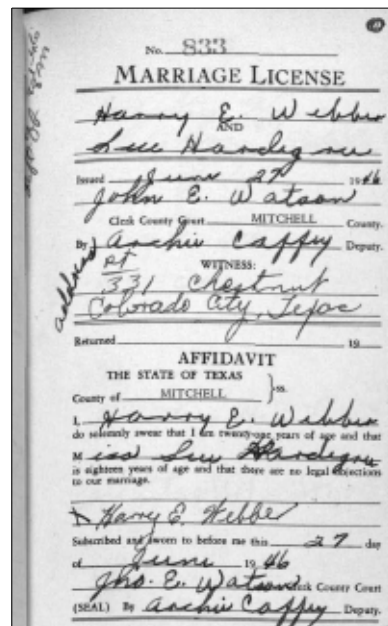 No. 833
MARRIAGE LICENSE
Harry E. Webber
AND
Sue Hardegree
Issued June 27 1946
John E. Watson
Clerk County Court MITCHELL County.
By Archie Caffey Deputy.
WITNESS:
address at
331 Chestnut
Colorado City, Texas
Returned 19
AFFIDAVIT
THE STATE OF TEXAS
County of MITCHELL }ss.
I, Harry E. Webber
do solemnly swear that I am twenty-one years of age and that
Miss Sue Hardegree
is eighteen years of age and that there are no legal objections
to our marriage.
X Harry E. Webber
Subscribed and sworn to before me this 27 day
of June 1946
Jno. E. Watson Clerk County Court
(SEAL) By Archie Caffey Deputy.